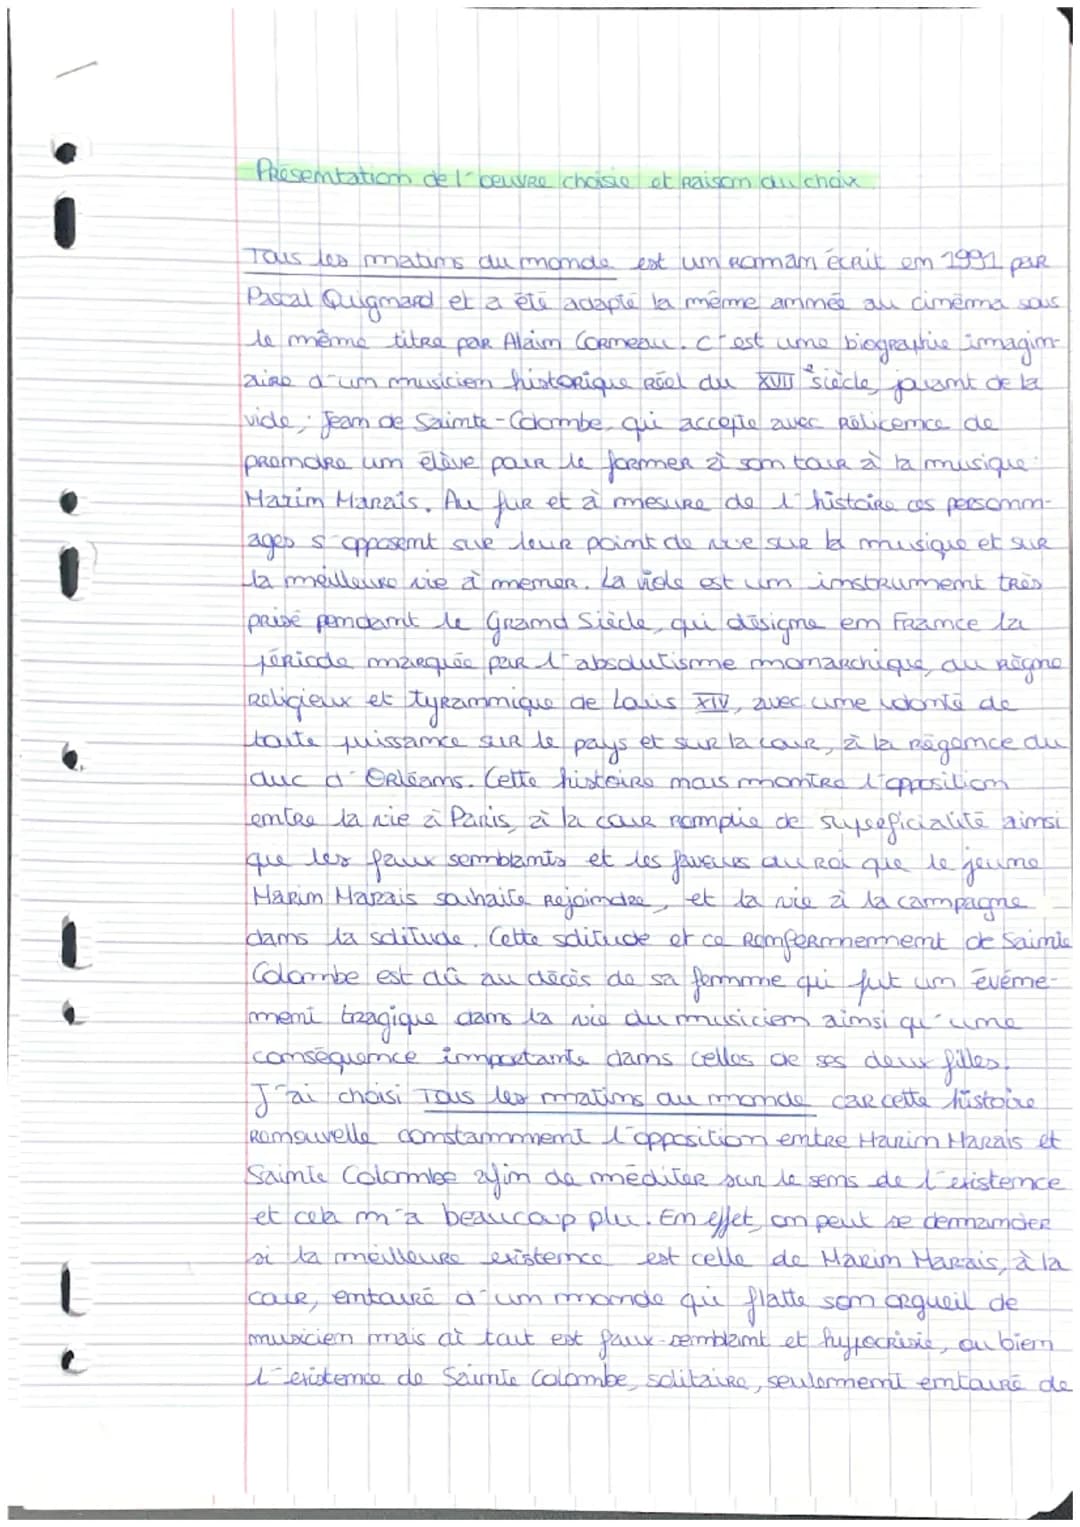 Présentation de l'oeuvre choisie et raison du choix
Tous les matins du monde est un roman écrit en 1991 par
Pascal Quignard et a été adapté la même année au cinéma sous
le même titre par Alain Corneau. C'est une biographie imagin-
aire d'un musicien historique réel du XVII e siècle, jouant de la
viole, : Jean de Sainte-Colombe, qui accepte avec réticence de
prendre un élève pour le former à son tour à la musique :
Marin Marais. Au fur et à mesure de l'histoire ces personn-
ages s'opposent sur leur point de vue sur la musique et sur
la meilleure vie à mener. La viole est un instrument très
prisé pendant le Grand Siècle, qui désigne en France la
période marquée par l'absolutisme monarchique, au règne
religieux et tyrannique de Louis XIV, avec une volonté de
toute puissance sur le pays et sur la cour, à la régence du
duc d'Orléans. Cette histoire nous montre l'opposition
entre la vie à Paris, à la cour remplie de superficialité ainsi
que les faux semblants et les faveurs du roi que le jeune
Marin Marais souhaite rejoindre, et la vie à la campagne
dans la solitude. Cette solitude et ce renfermement de Sainte
Colombe est dû au décès de sa femme qui fut un événe-
ment tragique dans la vie du musicien ainsi qu'une
conséquence importante dans celles de ses deux filles.
J'ai choisi Tous les matins du monde car cette histoire
renouvelle constamment l'opposition entre Marin Marais et
Sainte Colombe afin de méditer sur le sens de l'existence
et cela m'a beaucoup plu. En effet, on peut se demander
si la meilleure existence est celle de Marin Marais, à la
cour, entouré d'un monde qui flatte son orgueil de
musicien mais où tout est faux-semblant et hypocrisie, ou bien
l'existence de Sainte Colombe, solitaire, seulement entouré de